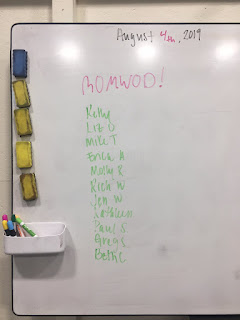 August 4th, 2019
ROMWOD!
Kelly
Liz D
Mike T
Erica H
Molly R
Rich W
Jen W
Kathleen
Paul S
Greg S
Beth C